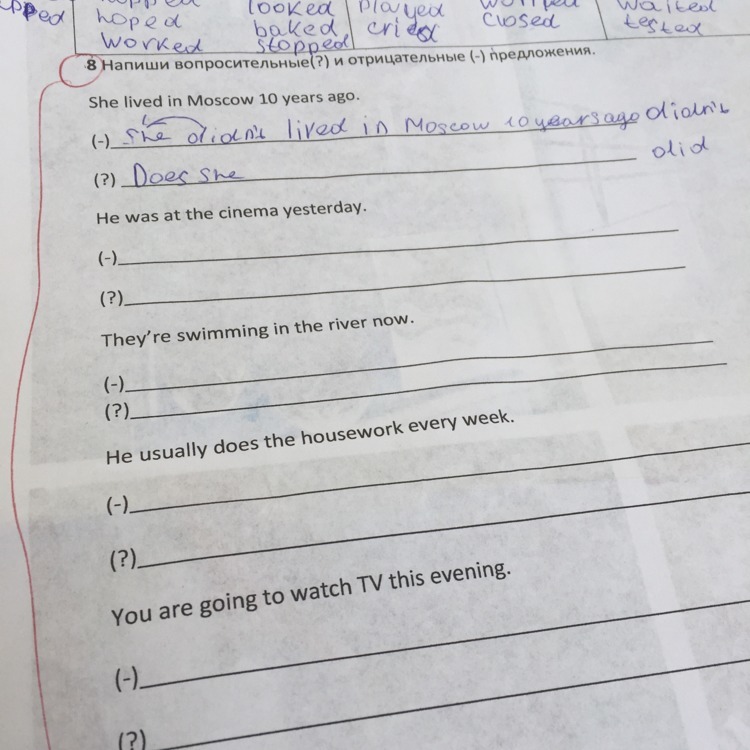 looked played waited
hoped baked cried closed tested
worked stopped
8 Напиши вопросительные(?) и отрицательные (-) предложения.
She lived in Moscow 10 years ago.
(-) She didn't lived in Moscow 10 years ago didn't
(?) Does she did
He was at the cinema yesterday.
(-)
(?)
They're swimming in the river now.
(-)
(?)
He usually does the housework every week.
(-)
(?)
You are going to watch TV this evening.
(-)
(?)